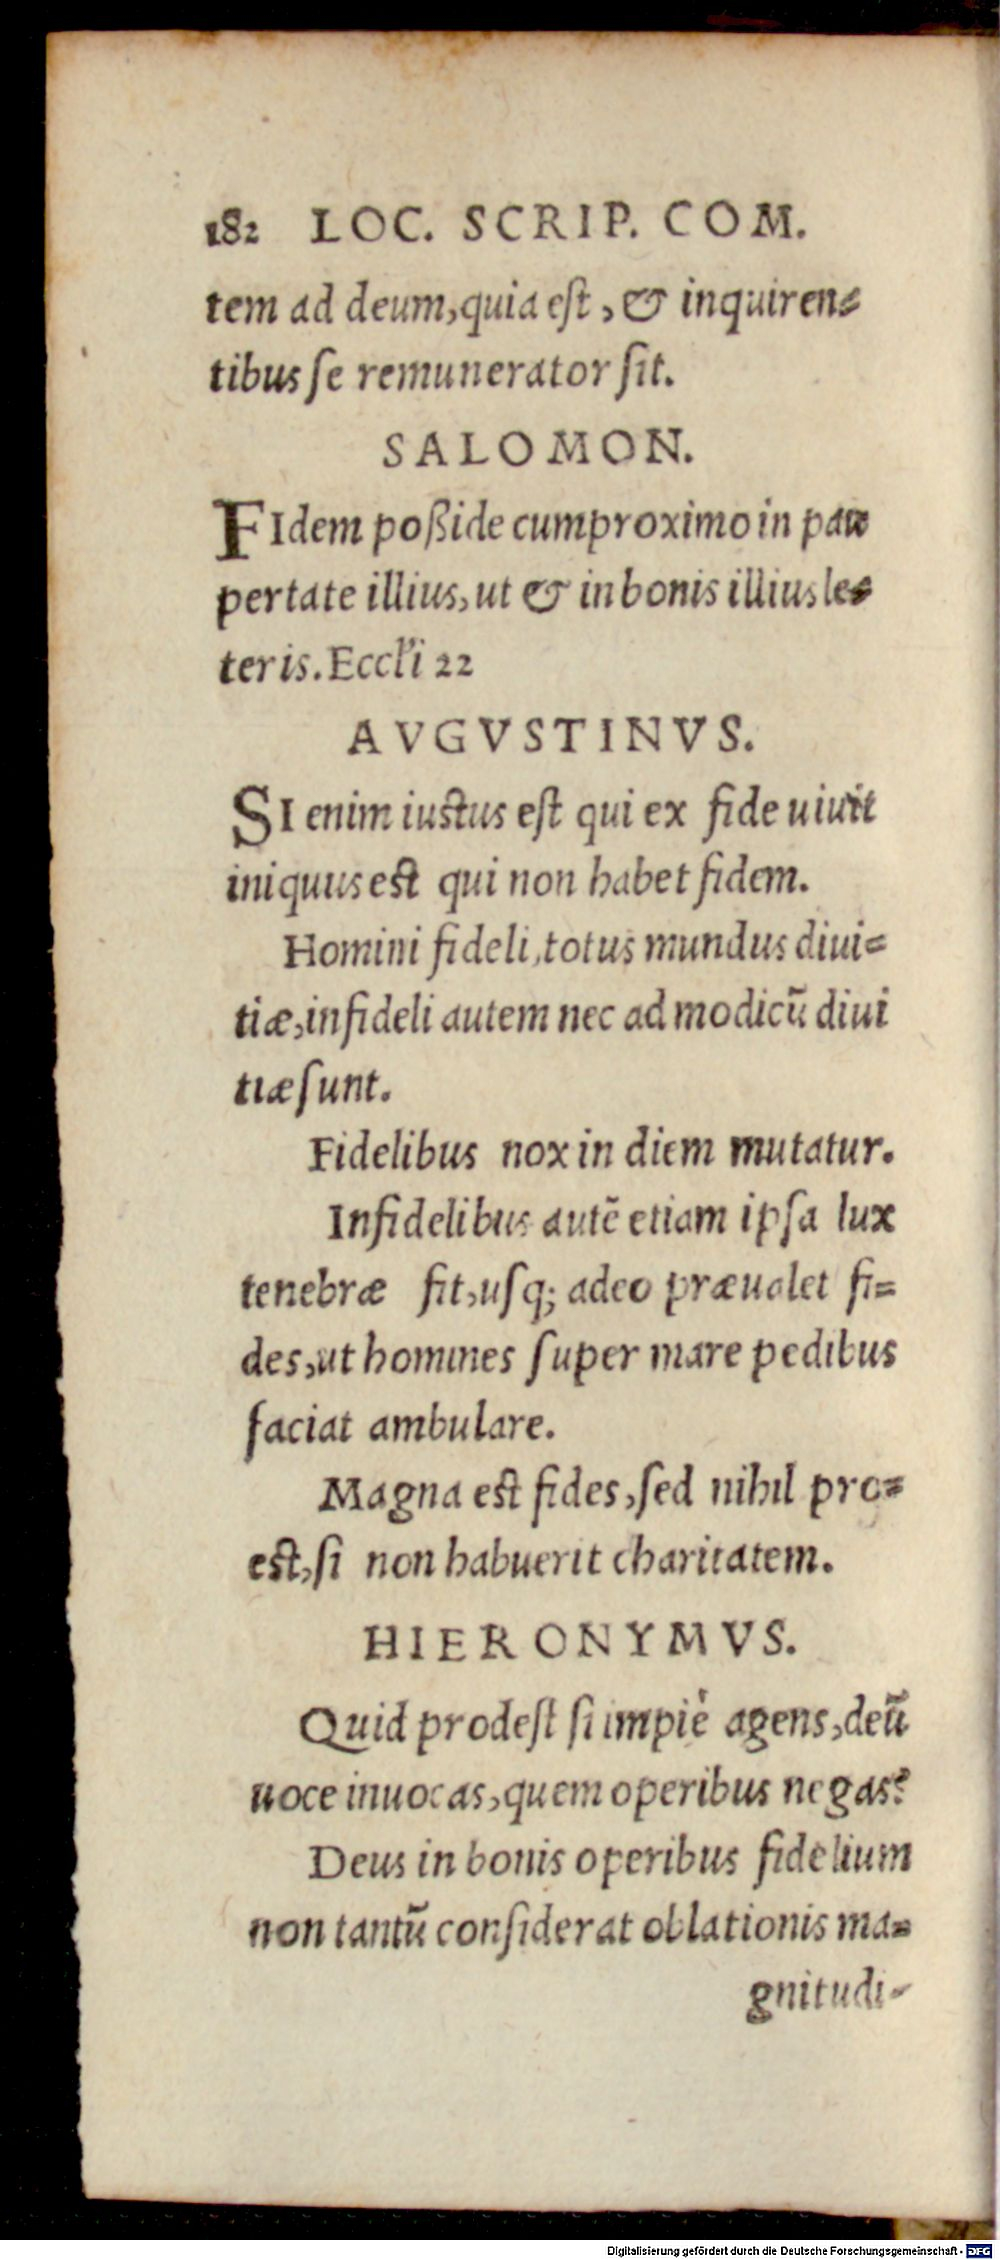 182 LOC. SCRIP. COM.
tem ad deum, quia est, & inquiren=
tibus se remunerator sit.
SALOMON.
FIdem poßide cum proximo in pau
pertate illius, ut & in bonis illius le=
teris. Eccl'i 22
AVGVSTINVS.
SI enim iustus est qui ex fide uiuit
iniquus est qui non habet fidem.
Homini fideli, totus mundus diui=
tiæ, infideli autem nec ad modicū diui
tiæ sunt.
Fidelibus nox in diem mutatur.
Infidelibus autē etiam ipsa lux
tenebræ fit, usq; adeo præualet fi=
des, ut homines super mare pedibus
faciat ambulare.
Magna est fides, sed nihil pro=
est, si non habuerit charitatem.
HIERONYMVS.
Quid prodest si impiè agens, deū
uoce inuocas, quem operibus negas?
Deus in bonis operibus fidelium
non tantū considerat oblationis ma=
gnitudi-
Digitalisierung gefördert durch die Deutsche Forschungsgemeinschaft - DFG